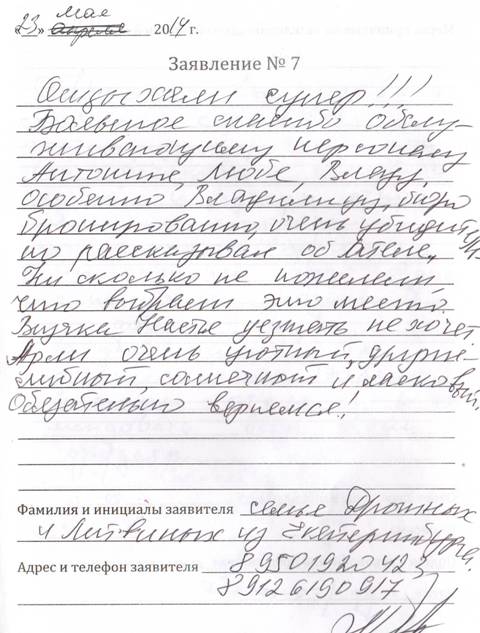 Мая
«23» апреля 2014 г.
Заявление № 7
Отдыхали супер!!!
Большое спасибо обслу-
живающему персоналу
Антонине, Любе, Владу,
особенно Владимиру, бюро
бронирования, очень убедитель
но рассказывал об отеле.
Ни сколько не пожалели,
что выбрали это место.
Внучка Настя уезжать не хочет.
очень уютный, друже-
любный, солнечный и ласковый.
Обязательно вернемся!
Фамилия и инициалы заявителя семья
и Литвиных из Екатеринбурга.
Адрес и телефон заявителя 89501920423
89126190917